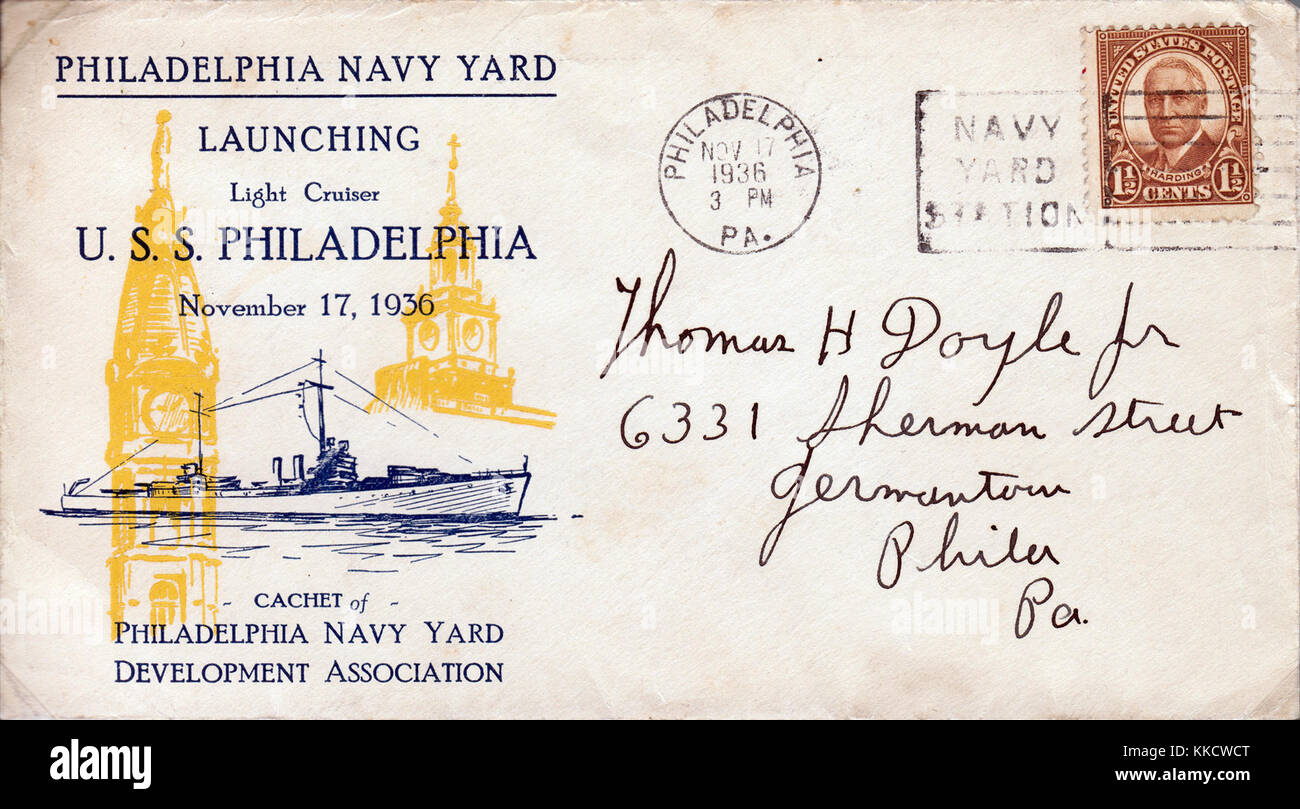 PHILADELPHIA NAVY YARD
LAUNCHING
Light Cruiser
U. S. S. PHILADELPHIA
November 17, 1936
- CACHET of -
PHILADELPHIA NAVY YARD
DEVELOPMENT ASSOCIATION
PHILADELPHIA
NOV 17
1936
3 PM
PA.
NAVY
YARD
STATION
UNITED STATES POSTAGE
HARDING
1½ CENTS 1½
Thomas H Doyle Jr
6331 Sherman Street
Germantown
Phila
Pa.
alamy
Image ID: KKCWCT
www.alamy.com